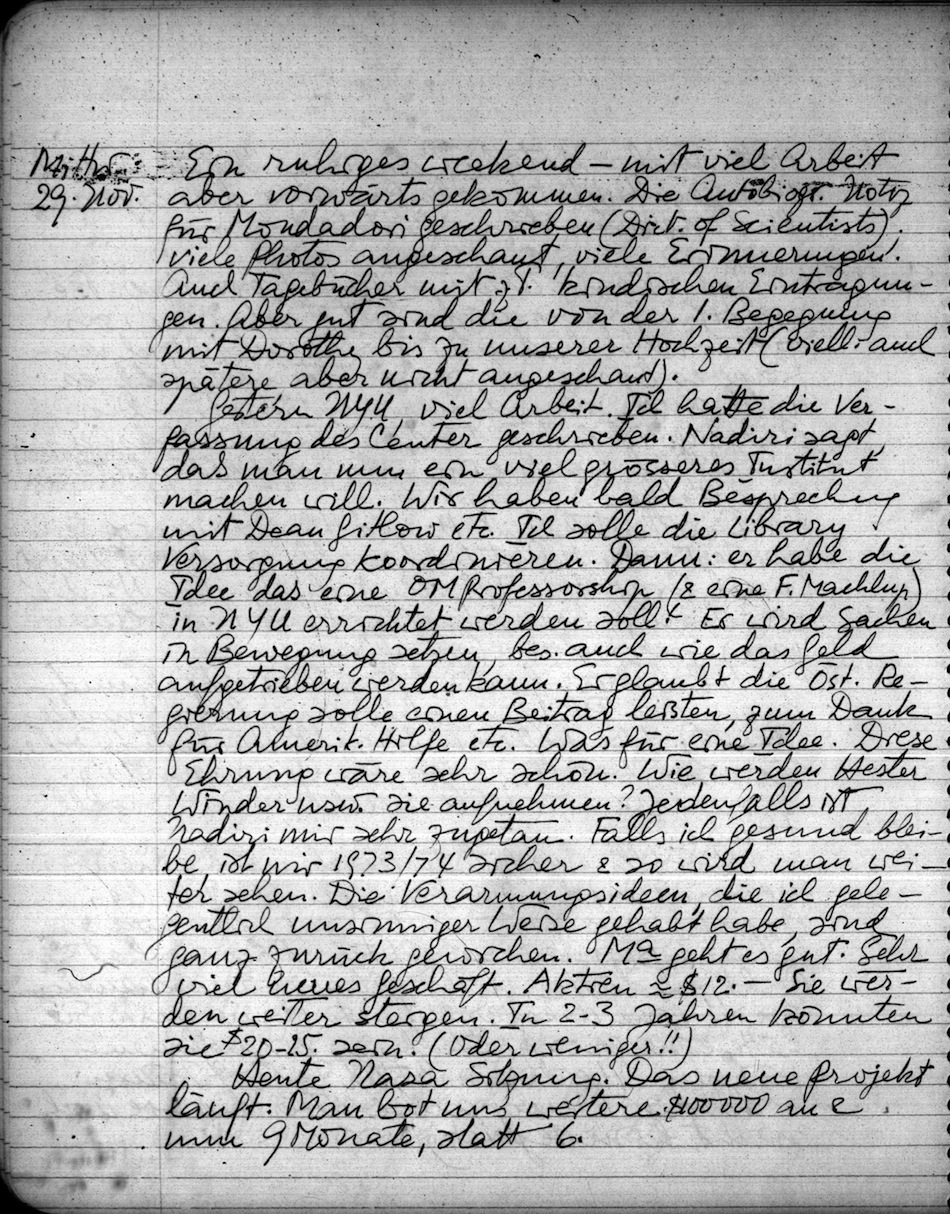 Mittw.
29. Nov.
Ein ruhiges weekend – mit viel Arbeit
aber vorwärts gekommen. Die Autobiogr. Notiz
für Mondadori geschrieben (Dict. of Scientists).
Viele Photos angeschaut, viele Erinnerungen!
Auch Tagebücher mit z.T. kindischen Eintragun-
gen. Aber gut sind die von der 1. Begegnung
mit Dorothy bis zu unserer Hochzeit (viell. auch
spätere aber nicht angeschaut).
Gestern NYU, viel Arbeit. Ich hatte die Ver-
fassung des Center geschrieben. Nadiri sagt,
das man nun ein viel grösseres Institut
machen will. Wir haben bald Besprechung
mit Dean Gitlow etc. Ich solle die Library
Versorgung koordinieren. Dann: er habe die
Idee das eine OM Professorship (& eine F. Machlup)
in NYU errichtet werden soll! Er wird Sachen
in Bewegung setzen, bes. auch wie das Geld
aufgetrieben werden kann. Er glaubt die Öst. Re-
gierung solle einen Beitrag leisten, zum Dank
für Amerik. Hilfe etc. Was für eine Idee. Diese
Ehrung wäre sehr schön. Wie werden Hester
Winder usw. sie aufnehmen? Jedenfalls ist
Nadiri mir sehr zugetan. Falls ich gesund blei-
be, ist mir 1973/74 sicher & so wird man wei-
ter sehen. Die Verarmungsideen, die ich gele-
gentlich unsinniger Weise gehabt habe, sind
ganz zurück gewichen. Ma geht es gut. Sehr
viel neues Geschäft. Aktien ≈ $12.– Sie wer-
den weiter steigen. In 2-3 Jahren könnten
sie $20-25. sein. (Oder weniger!!)
Heute Nasa Sitzung. Das neue Projekt
läuft. Man bot uns weitere $100000 an &
nun 9 Monate, statt 6.